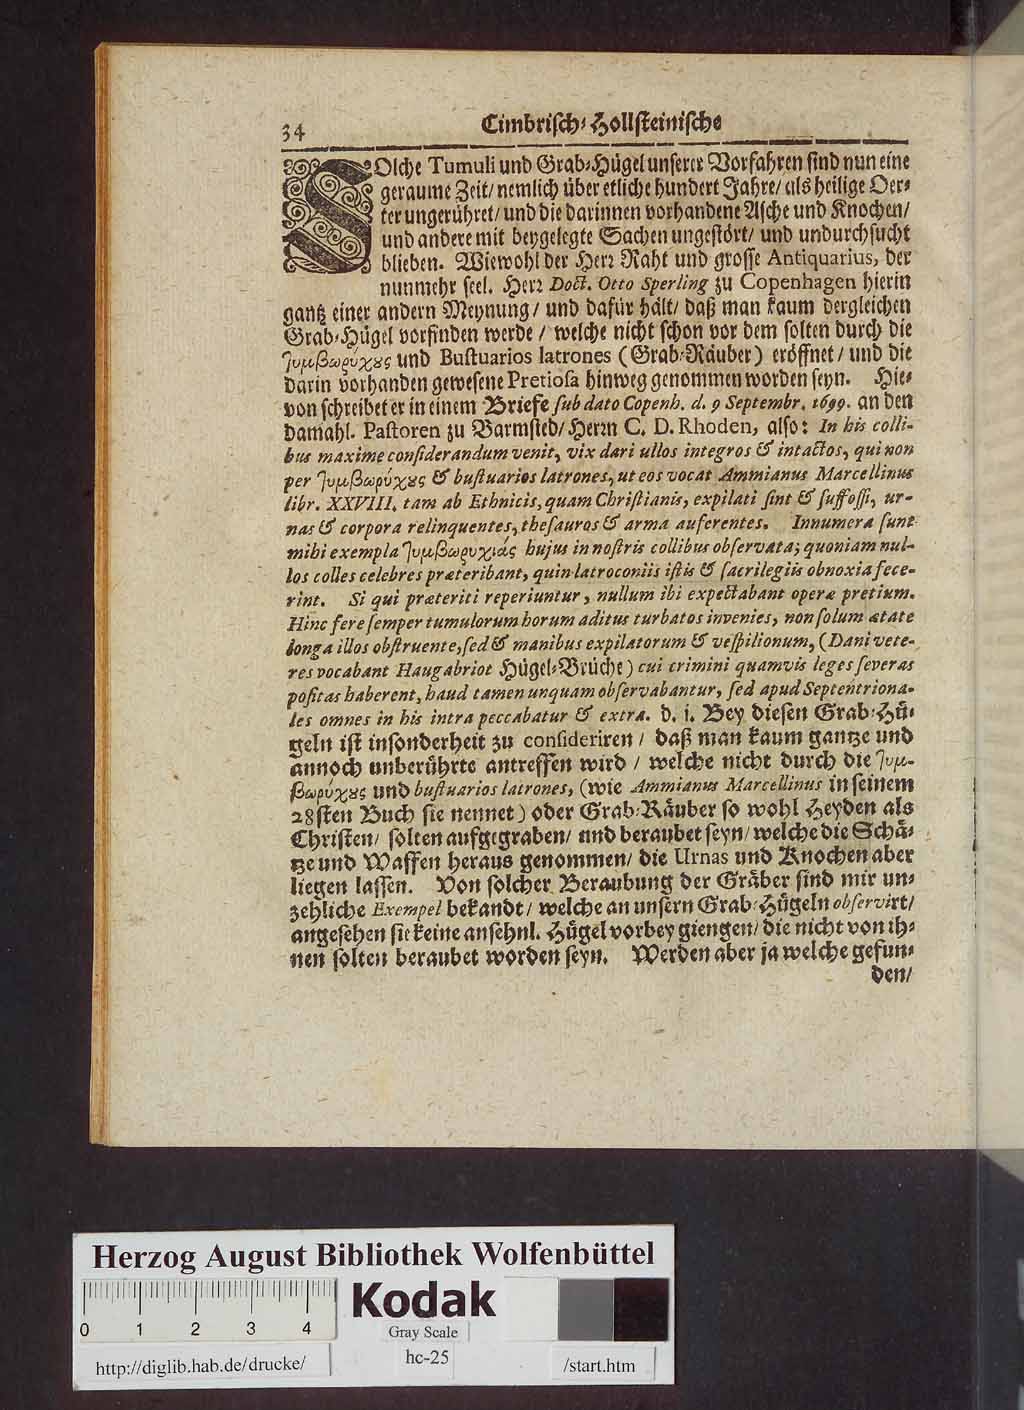 34 Cimbrisch-Hollsteinische
SOlche Tumuli und Grab-Hügel unserer Vorfahren sind nun eine
geraume Zeit/ nemlich über etliche hundert Jahre/ als heilige Oer-
ter ungerühret/ und die darinnen vorhandene Asche und Knochen/
und andere mit beygelegte Sachen ungestört/ und undurchsucht
blieben. Wiewohl der Herr Raht und grosse Antiquarius, der
nunmehr seel. Herr Doct. Otto Sperling zu Copenhagen hierin
gantz einer andern Meynung/ und dafür hält/ daß man kaum dergleichen
Grab-Hügel vorfinden werde / welche nicht schon vor dem solten durch die
Τυμβωρύχȣς und Bustuarios latrones (Grab-Räuber) eröffnet/ und die
darin vorhanden gewesene Pretiosa hinweg genommen worden seyn. Hie-
von schreibet er in einem Briefe sub dato Copenh. d. 9 Septembr. 1699. an den
damahl. Pastoren zu Barmsted/ Herrn C. D. Rhoden, also: In his colli-
bus maxime considerandum venit, vix dari ullos integros & intactos, qui non
per Τυμβωρύχȣς & bustuarios latrones, ut eos vocat Ammianus Marcellinus
libr. XXVIII. tam ab Ethnicis, quam Christianis, expilati sint & suffossi, ur-
nas & corpora relinquentes, thesauros & arma auferentes. Innumera sunt
mihi exempla Τυμβωρυχιάς hujus in nostris collibus observata; quoniam nul-
los colles celebres præteribant, quin latroconiis istis & sacrilegiis obnoxia fece-
rint. Si qui præteriti reperiuntur, nullum ibi expectabant operæ pretium.
Hinc fere semper tumulorum horum aditus turbatos invenies, non solum ætate
longa illos obstruente, sed & manibus expilatorum & vespilionum, (Dani vete-
res vocabant Haugabriot Hügel-Brüche) cui crimini quamvis leges severas
positas haberent, haud tamen unquam observabantur, sed apud Septentriona-
les omnes in his intra peccabatur & extra. d. i. Bey diesen Grab-Hü-
geln ist insonderheit zu consideriren / daß man kaum gantze und
annoch unberührte antreffen wird / welche nicht durch die Τυμ-
βωρύχȣς und bustuarios latrones, (wie Ammianus Marcellinus in seinem
28sten Buch sie nennet) oder Grab-Räuber so wohl Heyden als
Christen/ solten aufgegraben/ und beraubet seyn/ welche die Schä-
tze und Waffen heraus genommen/ die Urnas und Knochen aber
liegen lassen. Von solcher Beraubung der Gräber sind mir un-
zehliche Exempel bekandt/ welche an unsern Grab-Hügeln observirt/
angesehen sie keine ansehnl. Hügel vorbey giengen/ die nicht von ih-
nen solten beraubet worden seyn. Werden aber ja welche gefun-
den/
Herzog August Bibliothek Wolfenbüttel
0 1 2 3 4
Kodak
Gray Scale
http://diglib.hab.de/drucke/ hc-25 /start.htm